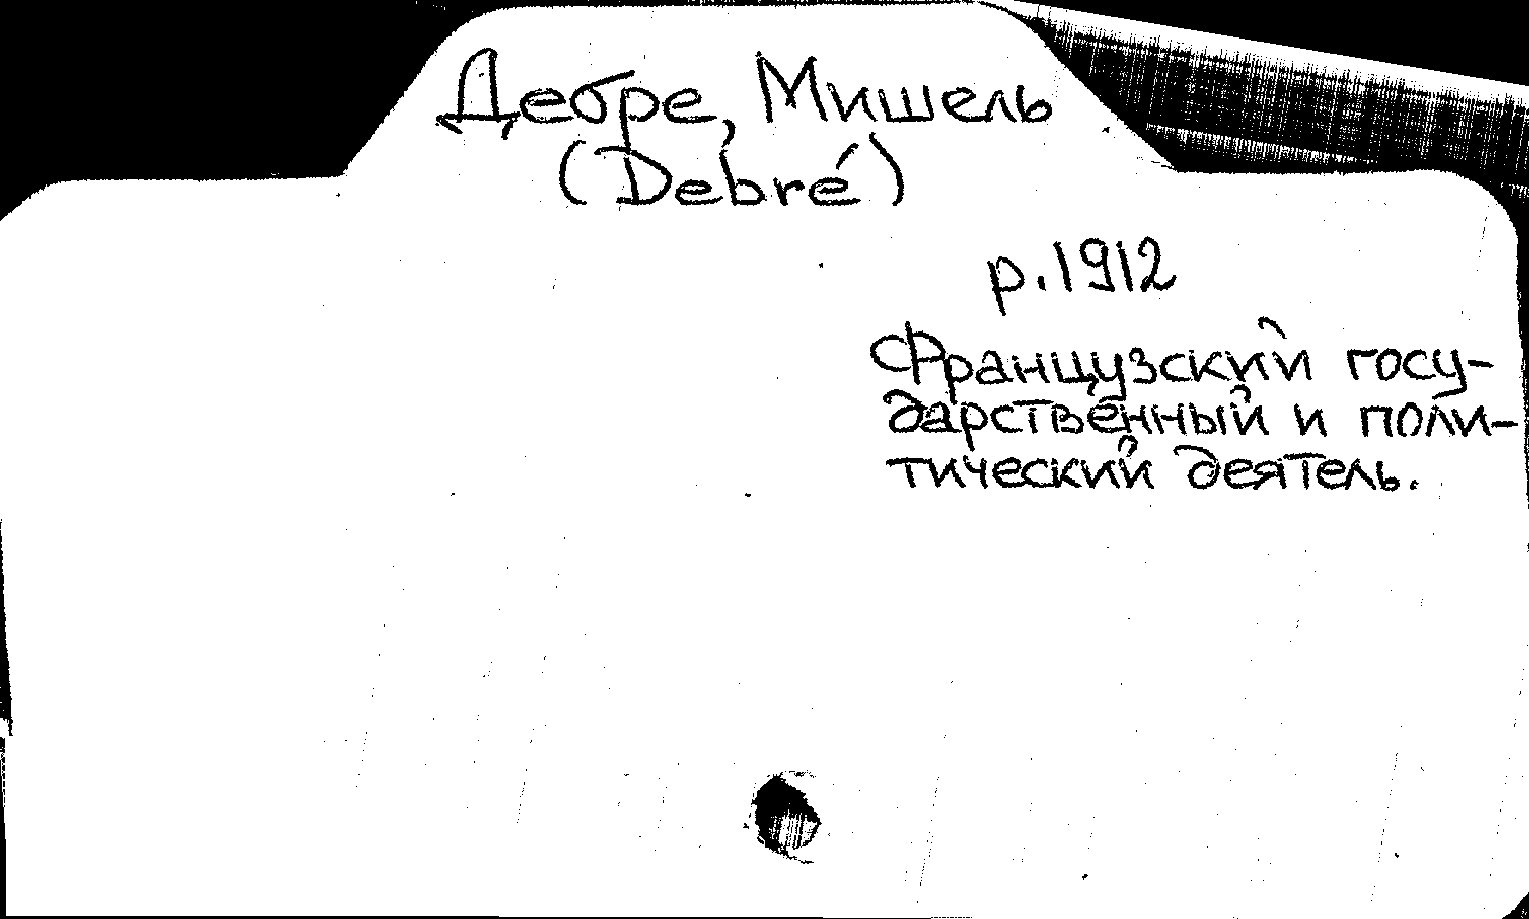 Дебре, Мишель
(Debré)
р. 1912
Французский госу-
дарственный и поли-
тический деятель.